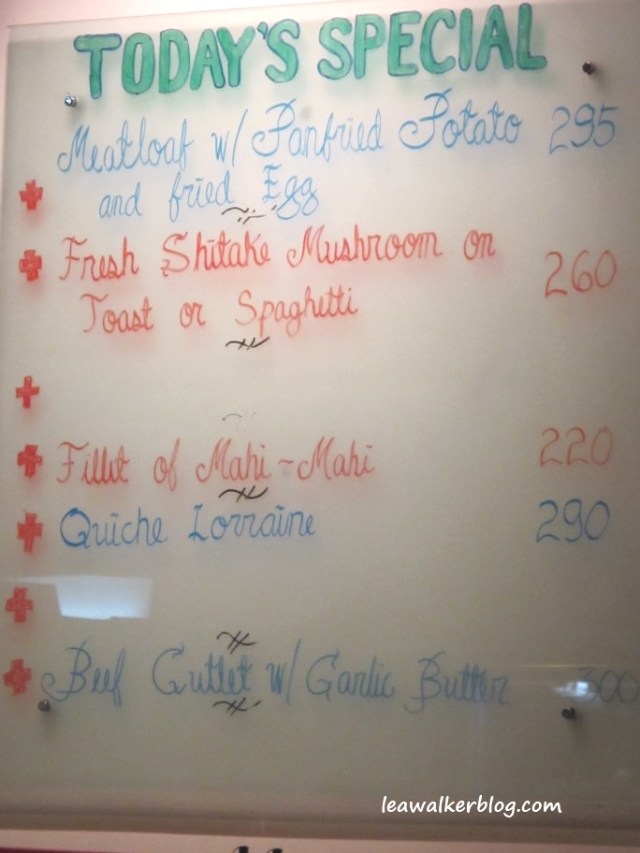 TODAY'S SPECIAL
Meatloaf w/ Panfried Potato 295
and fried Egg
Fresh Shitake Mushroom on
Toast or Spaghetti 260
Fillet of Mahi-Mahi 220
Quiche Lorraine 290
Beef Cutlet w/ Garlic Butter 300
leawalkerblog.com